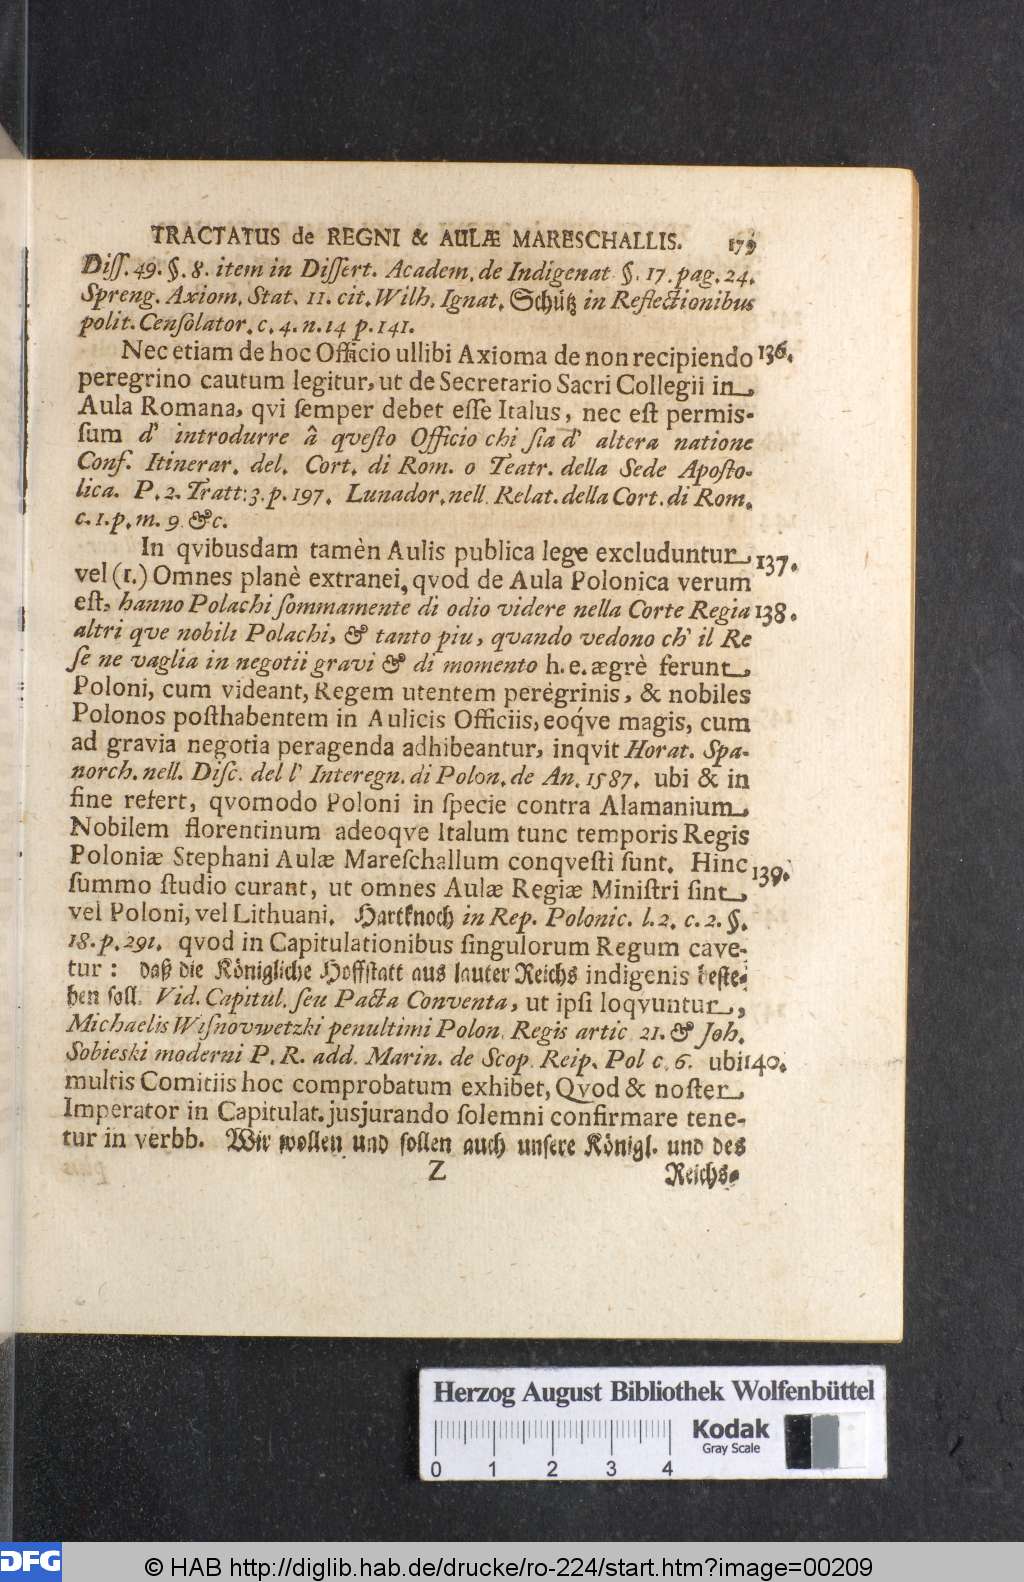 TRACTATUS de REGNI & AULÆ MARESCHALLIS. 179
Diſſ. 49. §. 8. item in Diſſert. Academ. de Indigenat. §. 17. pag. 24.
Spreng. Axiom. Stat. 11. cit. Wilh. Ignat. Schütz in Reflectionibus
polit. Conſolator. c. 4. n. 14 p. 141.
Nec etiam de hoc Officio ullibi Axioma de non recipiendo 136.
peregrino cautum legitur, ut de Secretario Sacri Collegii in
Aula Romana, qvi ſemper debet eſſe Italus, nec eſt permiſ-
ſum d' introdurre â qveſto Officio chi ſia d' altera natione
Conf. Itinerar. del. Cort. di Rom. o Teatr. della Sede Apoſto-
lica. P. 2. Tratt: 3. p. 197. Lunador. nell. Relat. della Cort. di Rom.
c. 1. p. m. 9. &c.
In qvibusdam tamèn Aulis publica lege excluduntur 137.
vel (1.) Omnes planè extranei, qvod de Aula Polonica verum
eſt, hanno Polachi ſommamente di odio videre nella Corte Regia 138.
altri qve nobili Polachi, & tanto piu, qvando vedono ch' il Re
ſe ne vaglia in negotii gravi & di momento h. e. ægrè ferunt
Poloni, cum videant, Regem utentem peregrinis, & nobiles
Polonos poſthabentem in Aulicis Officiis, eoq́ve magis, cum
ad gravia negotia peragenda adhibeantur, inqvit Horat. Spa-
norch. nell. Diſc. del l' Interegn. di Polon. de An. 1587. ubi & in
fine refert, qvomodo Poloni in ſpecie contra Alamanium
Nobilem florentinum adeoqve Italum tunc temporis Regis
Poloniæ Stephani Aulæ Mareſchallum conqveſti ſunt. Hinc 139.
ſummo ſtudio curant, ut omnes Aulæ Regiæ Miniſtri ſint
vel Poloni, vel Lithuani. Hartknoch in Rep. Polonic. l. 2. c. 2. §.
18. p. 291. qvod in Capitulationibus ſingulorum Regum cave-
tur: daß die Königliche Hoffſtatt aus lauter Reichs indigenis beſte-
hen ſoll. Vid. Capitul. ſeu Pacta Conventa, ut ipſi loqvuntur,
Michaelis Wiſnovwetzki penultimi Polon. Regis artic. 21. & Joh.
Sobieski moderni P. R. add. Marin. de Scop. Reip. Pol c. 6. ubi 140.
multis Comitiis hoc comprobatum exhibet, Qvod & noſter
Imperator in Capitulat. jusjurando ſolemni confirmare tene-
tur in verbb. Wir wollen und ſollen auch unſere Königl. und des
Z Reichs-
Herzog August Bibliothek Wolfenbüttel
Kodak
Gray Scale
0 1 2 3 4
DFG © HAB http://diglib.hab.de/drucke/ro-224/start.htm?image=00209